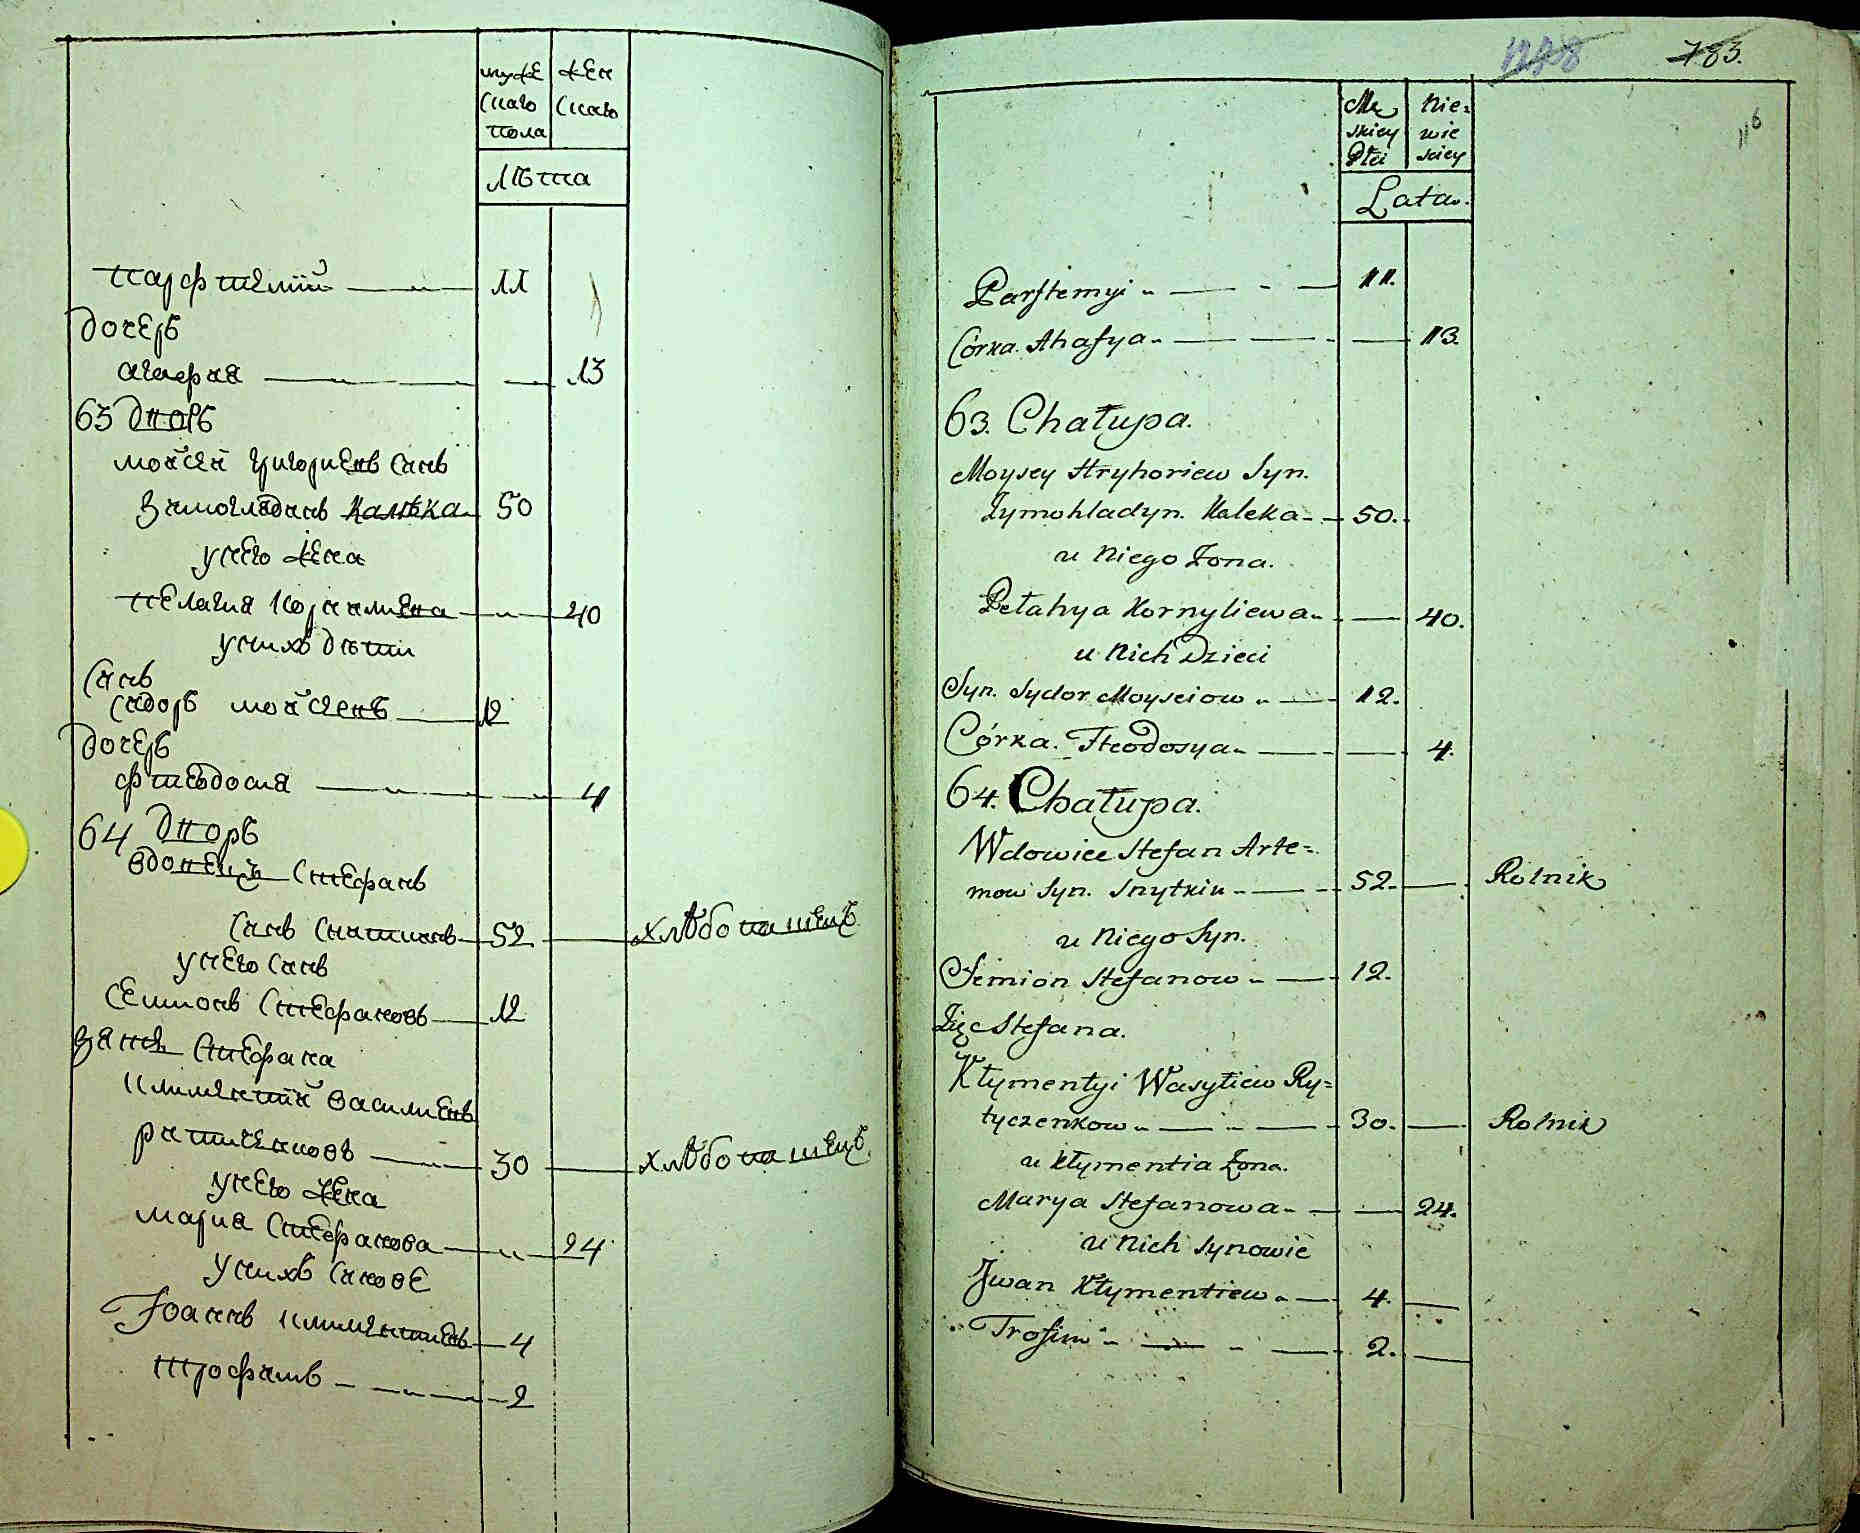 муже
скаго
пола
жен
скаго
лѣта
парфтемїй 11
дочерь
агафия 13
63 дворъ
мойсей григориевъ синъ
зимогладинъ калѣка 50
у него жена
пелагия корнилиева 40
у нихъ дѣти
синъ
сидоръ мойсеевъ 12
дочерь
фтеодосия 4
64 дворъ
вдовецъ стефанъ
синъ сниткинъ 52 хлѣбопашецъ
у него синъ
семионъ стефановъ 12
зять стефана
климентїй василиевъ
ритиченковъ 30 хлѣбопашецъ
у него жена
мария стефанова 24
у нихъ синове
Иоаннъ климентиевъ 4
трофимъ 2
783.
116
Mę
skiey
Płci
Nie-
wie
sciey
Lata.
Parftemyi 11.
Córka. Ahafya 13.
63. Chałupa.
Moysey Hryhoriew Syn.
Zymohladyn. Kaleka 50.
u Niego Żona.
Pełahya Kornyliewa 40.
u Nich Dzieci
Syn. Sydor Moysciow 12.
Córka. Fteodosya 4.
64. Chałupa.
Wdowiec Stefan Arte=
mow Syn. Snytkin 52. Rolnik
u Niego Syn.
Semion Stefanow 12.
Zięc Stefana.
Kłymentyi Wasyliew Ry=
tyczenkow 30. Rolnik
u Kłymentia Żona.
Marya Stefanowa 24.
u Nich Synowie
Jwan Kłymentiew 4.
Trofim 2.